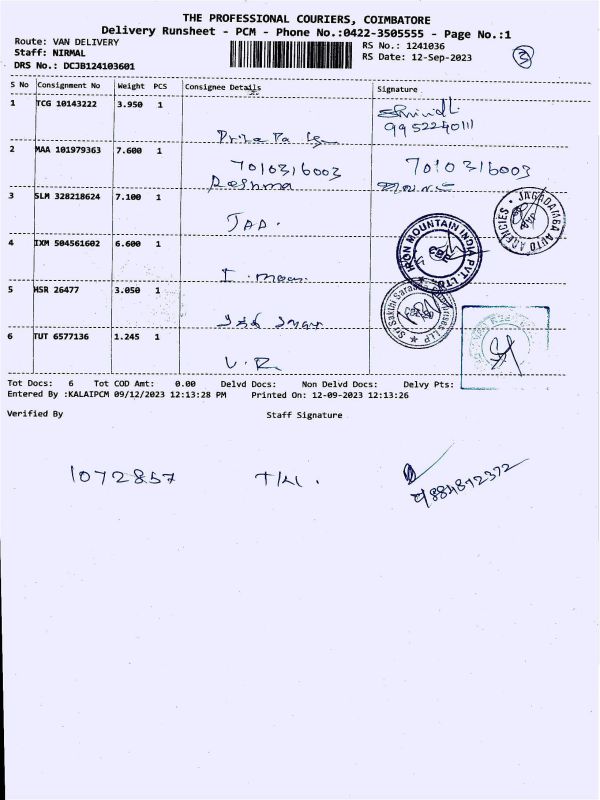 THE PROFESSIONAL COURIERS, COIMBATORE
Delivery Runsheet - PCM - Phone No.:0422-3505555 - Page No.:1
Route: VAN DELIVERY
RS No.: 1241036
3
Staff: NIRMAL
RS Date: 12-Sep-2023
DRS No.: DCJB124103601
S No Consignment No Weight PCS Consignee Details Signature
1 TCG 10143222 3.950 1
9952240111
2 MAA 101979363 7.600 1
7010316003 7010316003
Reshma
3 SLM 328218624 7.100 1
JAGADAMBA AUTO AGENCIES
IRON MOUNTAIN INDIA PVT. LTD
4 IXM 504561602 6.600 1
5 HSR 26477 3.050 1
Sri Sakthi LLP
6 TUT 6577136 1.245 1
V.R
Tot Docs: 6 Tot COD Amt: 0.00 Delvd Docs: Non Delvd Docs: Delvy Pts:
Entered By :KALAIPCM 09/12/2023 12:13:28 PM Printed On: 12-09-2023 12:13:26
Verified By Staff Signature
1072857
9884872372